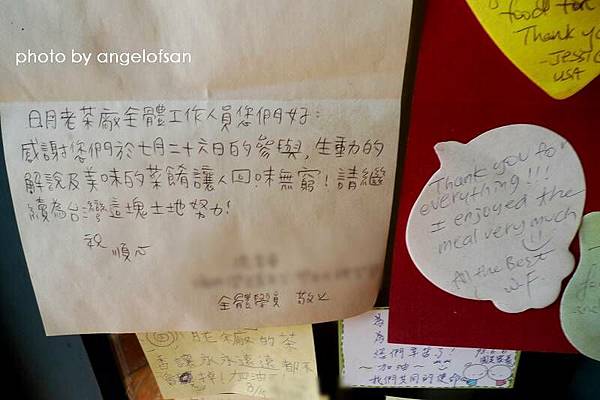 photo by angelofsan
日月老茶廠全體工作人員您們好：
感謝您們於七月二十六日的參與，生動的
解說及美味的菜餚讓人回味無窮！請繼
續為台灣這塊土地努力！
祝
順心
全體學員 敬上
food for
Thank you
-Jessic
USA
Thank you for
everything!!!
I enjoyed the
meal very much
All the Best
老茶廠的茶
香讓永永遠遠都不
加油
為
為
您們辛苦了！
~加油~
我們共同的使命